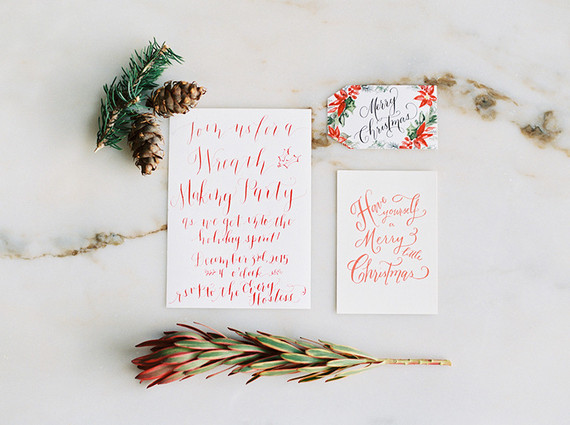 Join us for a
Wreath
Making Party
as we get into the
holiday spirit!
December 3rd, 2015
4 o'clock
rsvp to the
Hostess
Merry
Christmas
Have
yourself
a
Merry
little
Christmas